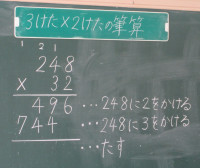 3けた×2けたの筆算
1 2 1
248
× 32
496 …248に2をかける
744 …248に3をかける
…たす